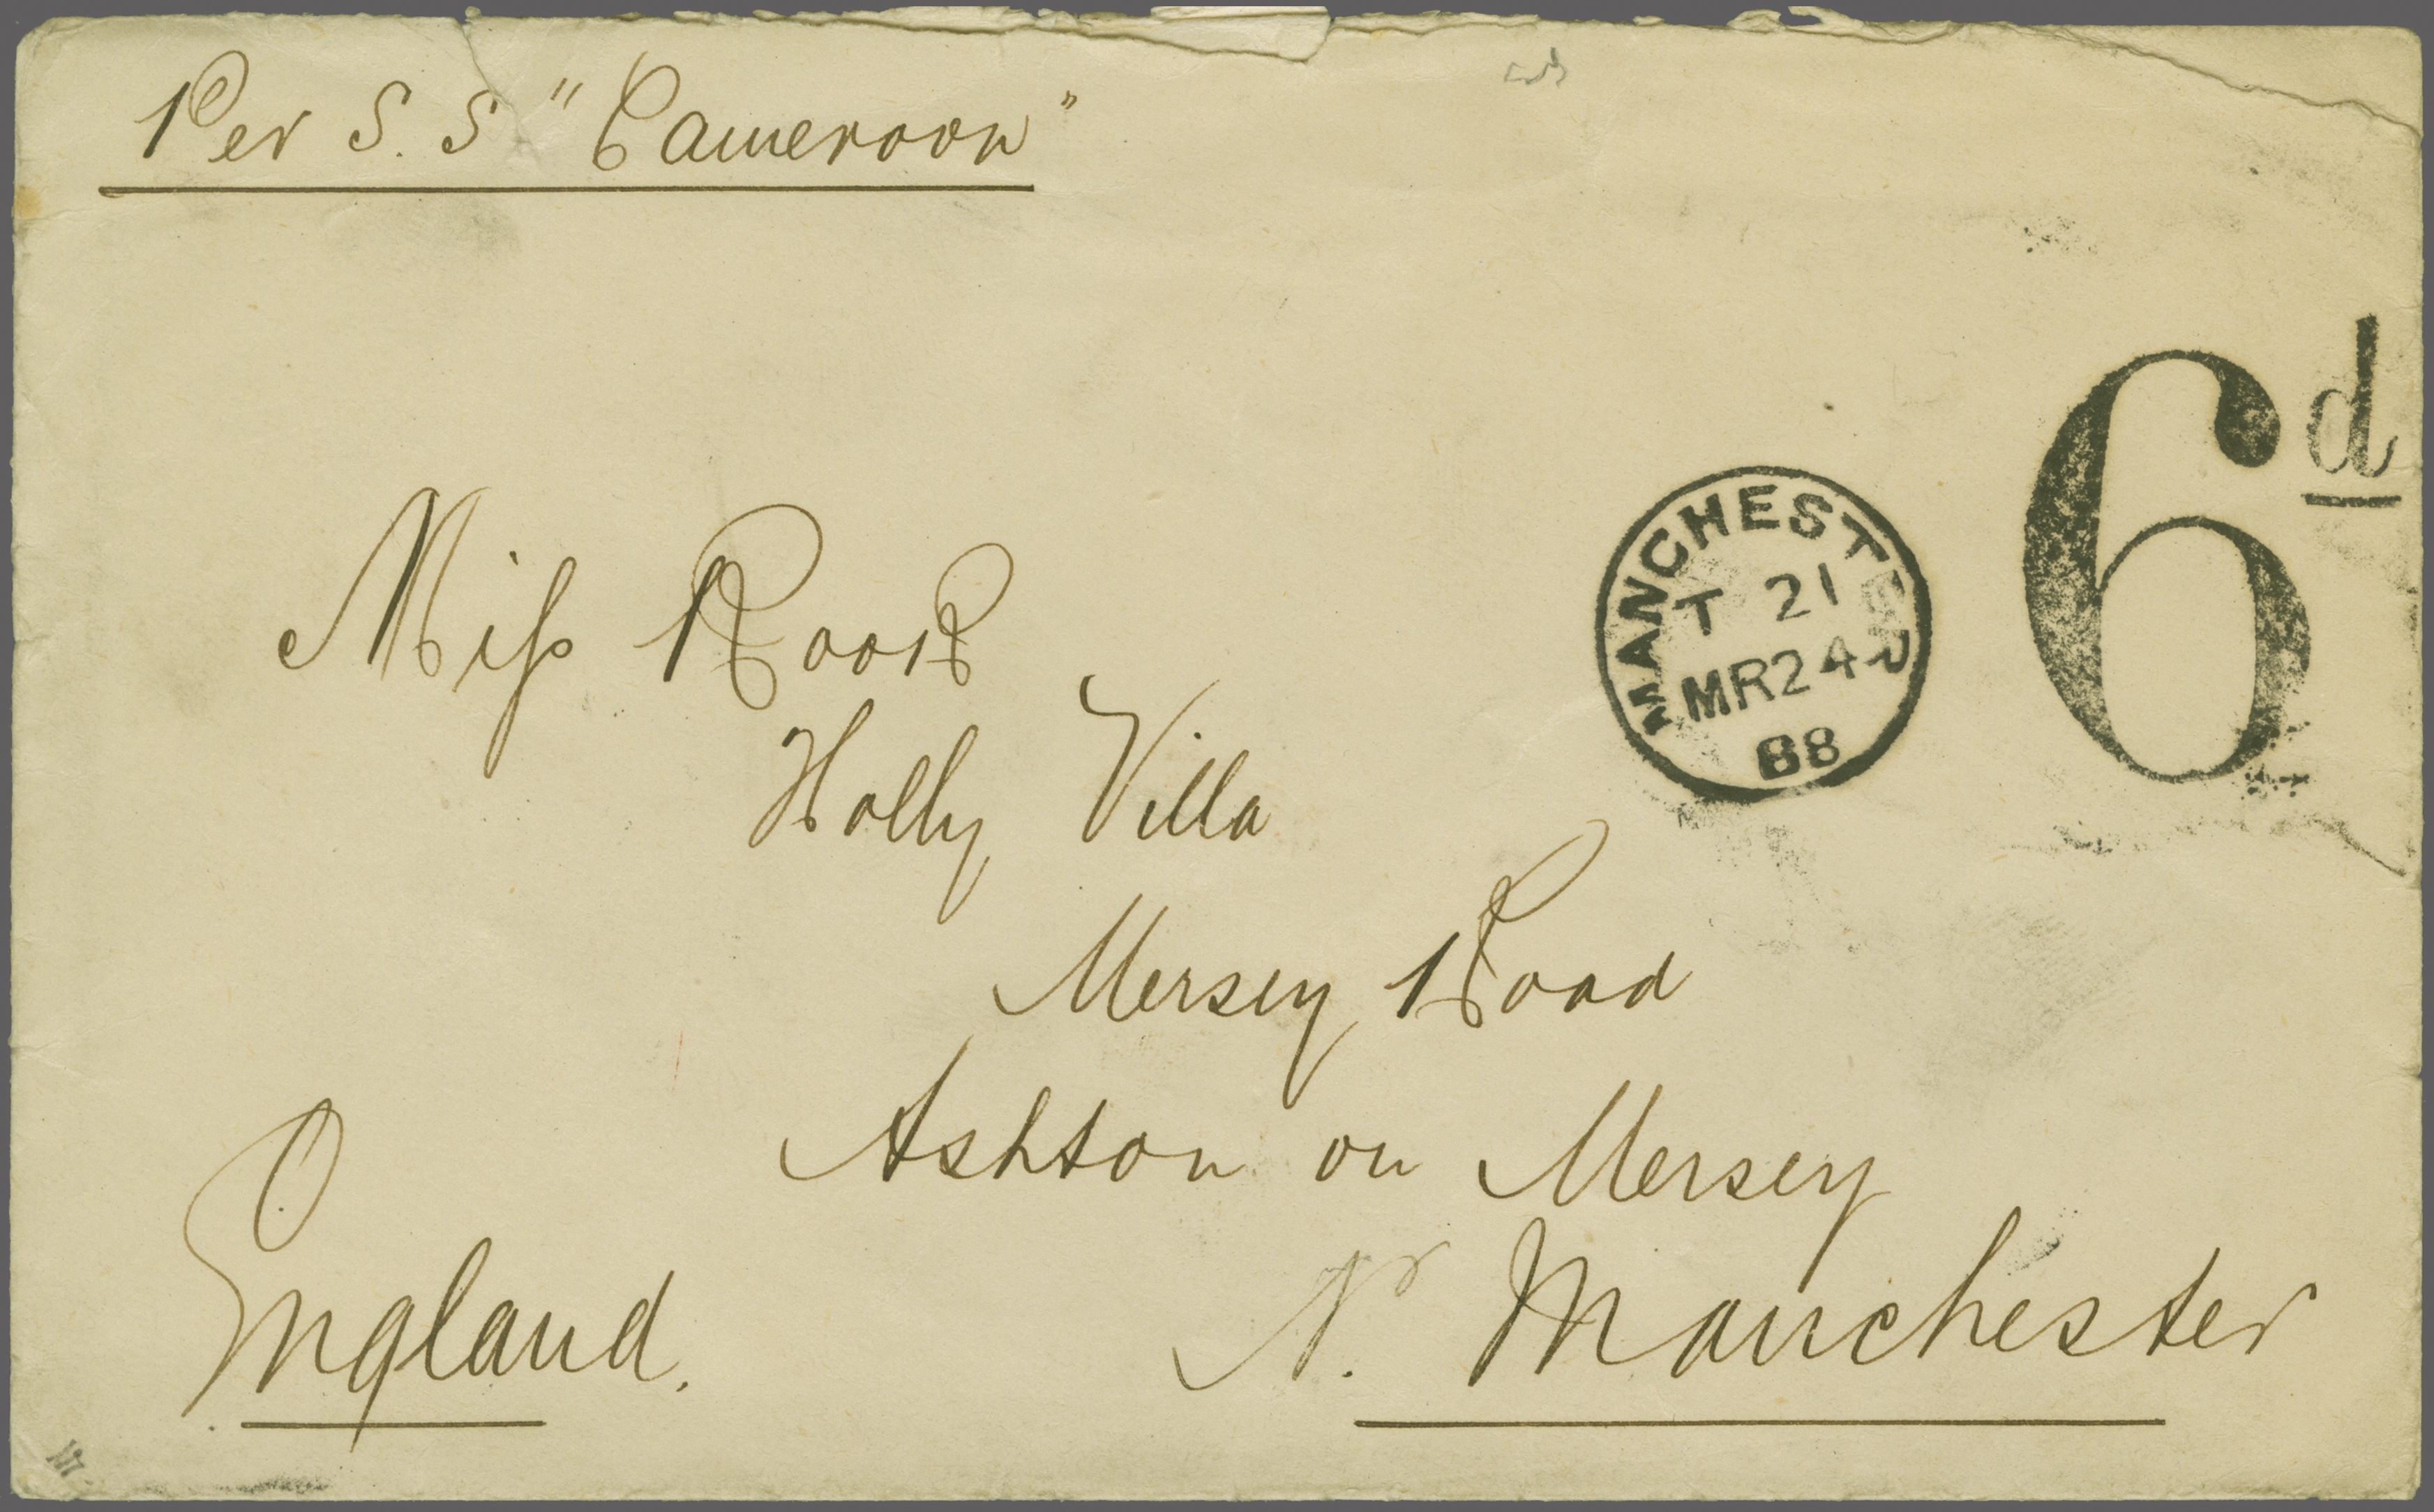 Per S. S "Cameroon"
6d
MANCHESTER
T 21
MR 24
88
Miss Rook
Holly Villa
Mersey Road
Ashton on Mersey
Nr. Manchester
England.